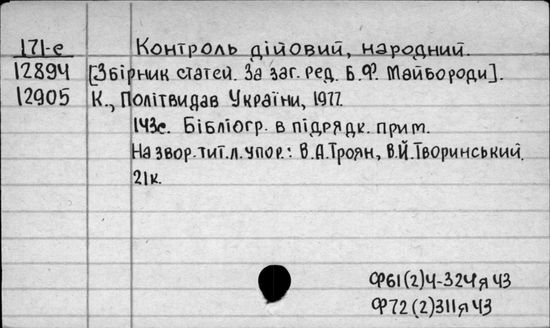 171-е Контроль дійовий, народний.
12894 [Збірник статей. За заг. ред. Б.Ф. Майбороди].
12905 К., Політвидав України, 1977.
143с. Бібліогр. в підрядк. прим.
На звор. тит. л. упор.: В.А.Троян, В.Й.Творинський.
21к.
Ф61(2)4-324я43
Ф72(2)311я43